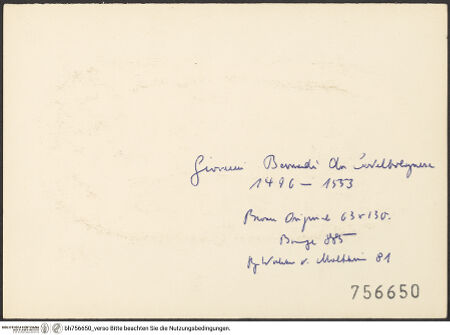 Giovanni Bernardi da Castelbolognese
1496 - 1553
Bronze Original 63 x 130.
Bange 885
756650
bh756650_verso Bitte beachten Sie die Nutzungsbedingungen.